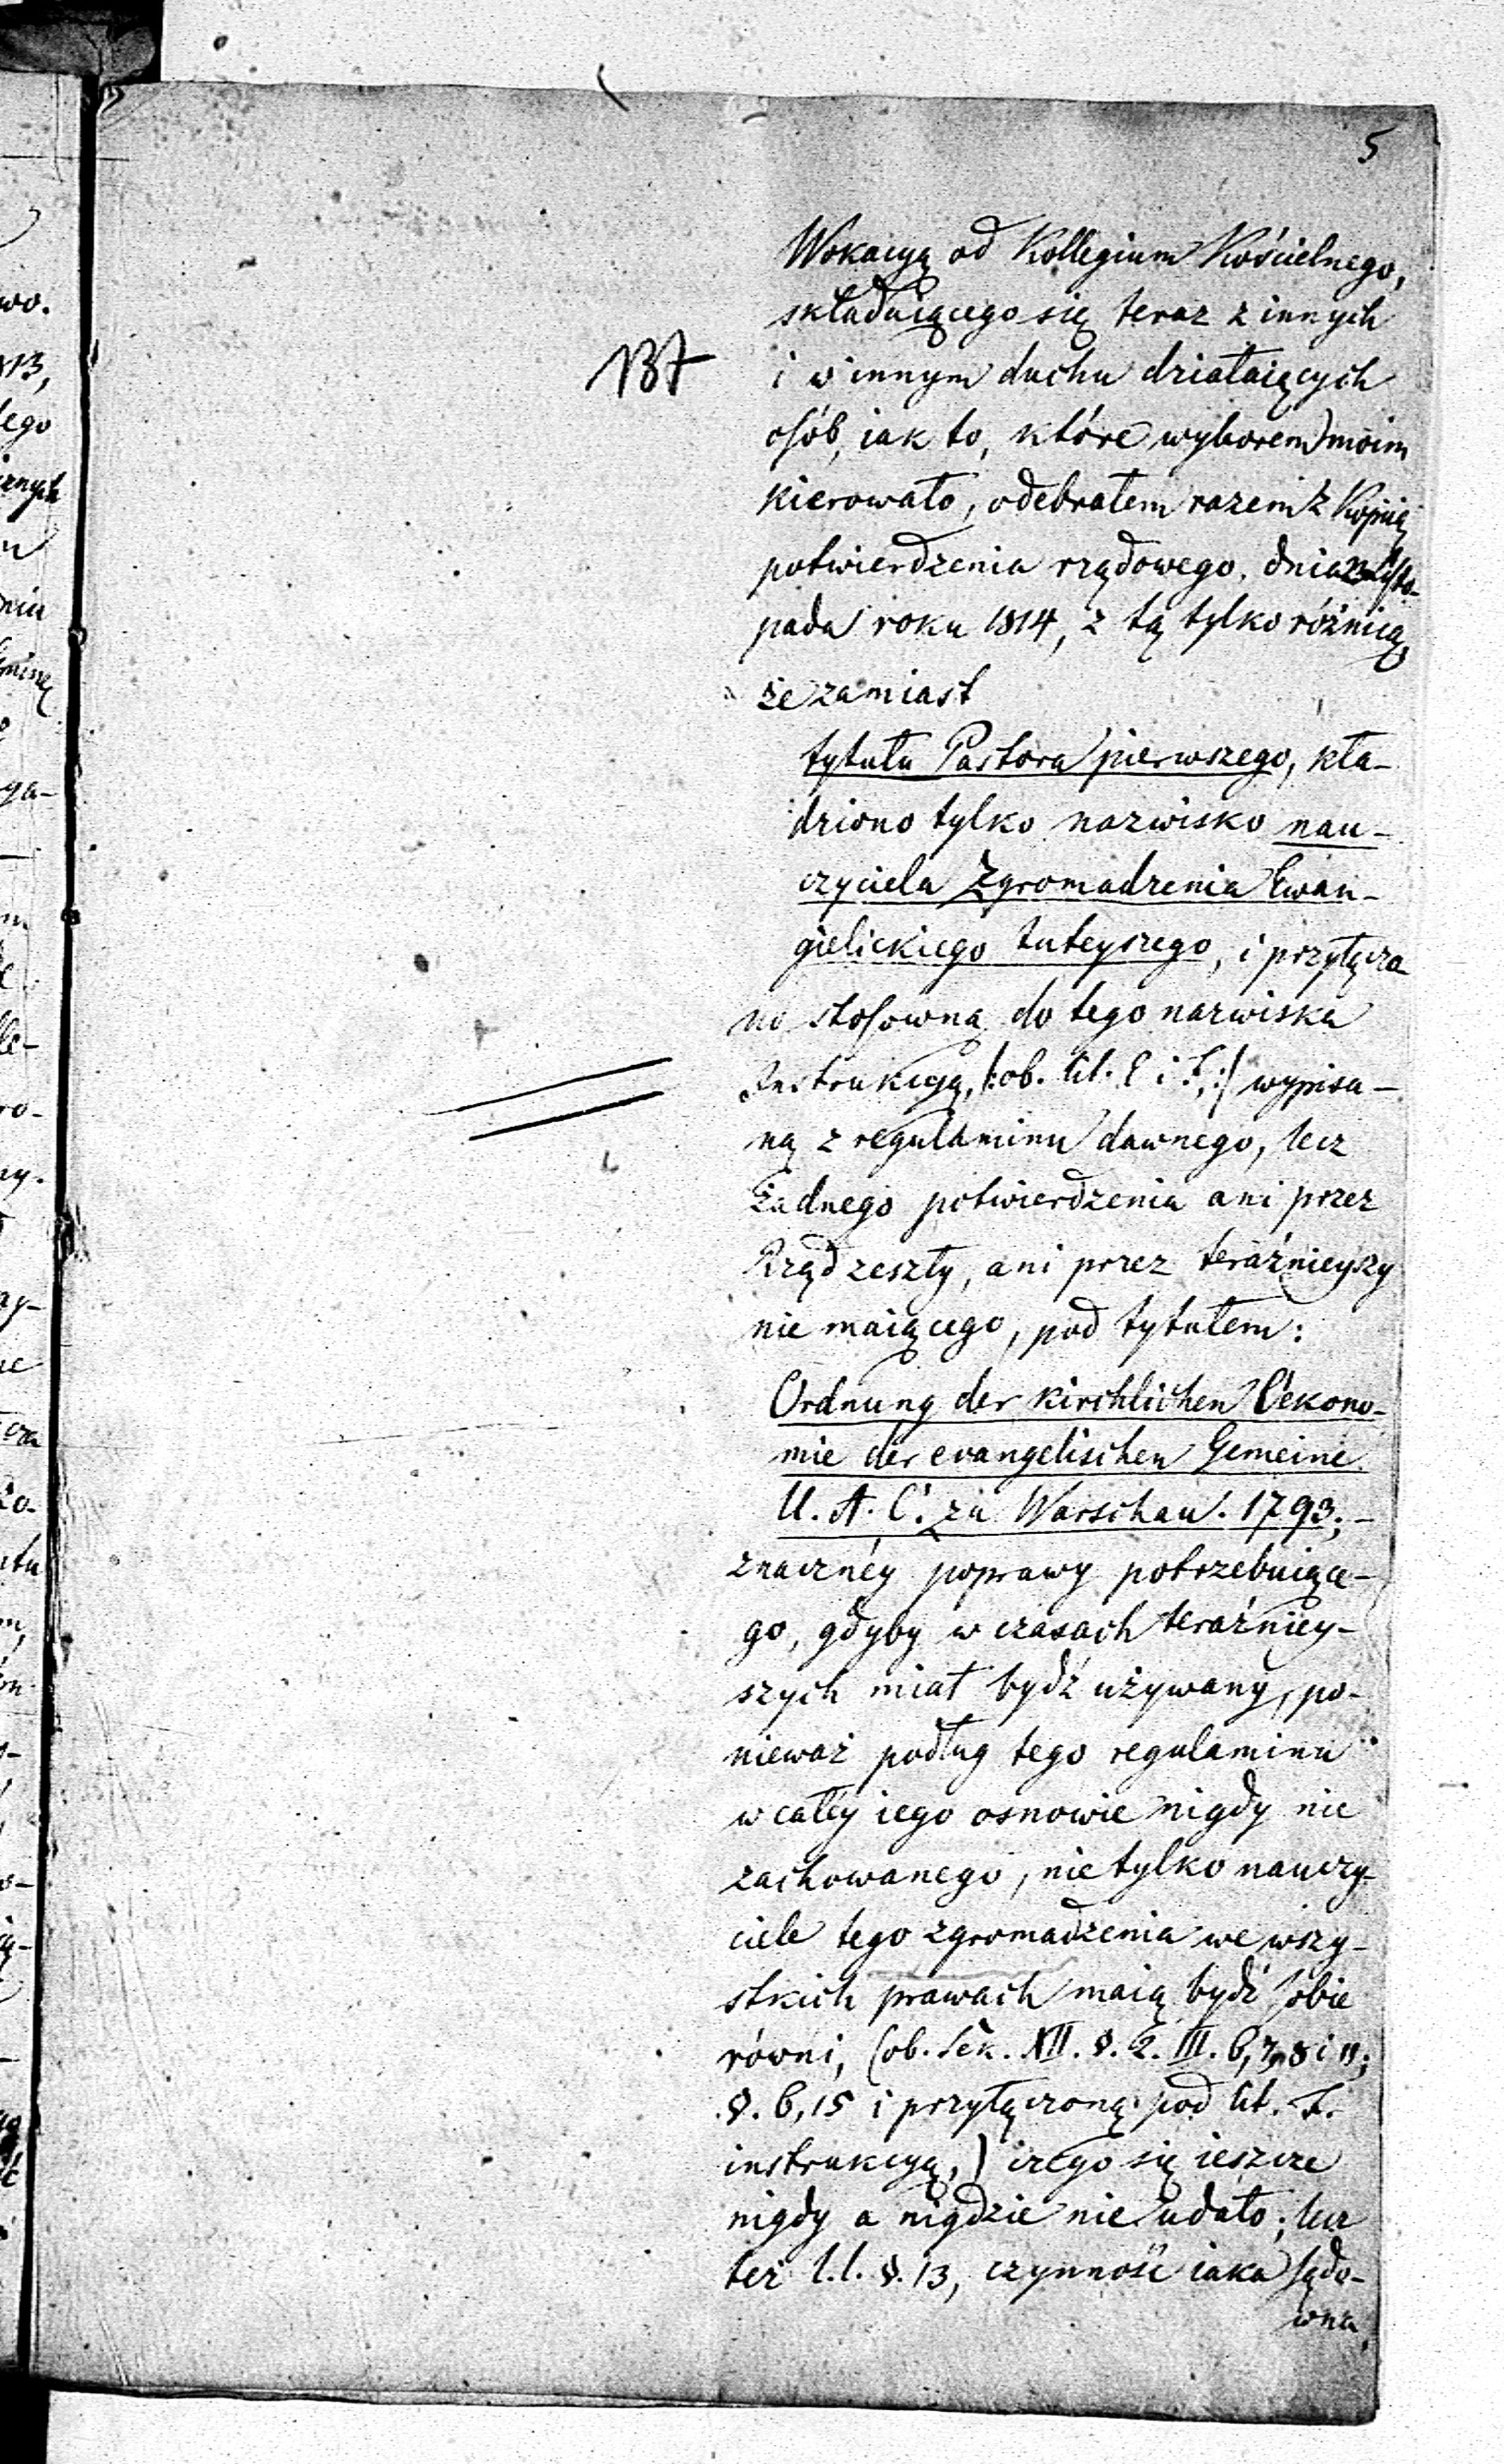 5
Wokacyą od Kollegium Kościelnego,
składaiącego się teraz z innych
i w innym duchu działaiących
osób, iak to, które wyborem moim
kierowało, odebrałem razem z Kopiią
potwierdzenia rządowego, dnia Listo-
pada roku 1814, z tą tylko różnicą,
że zamiast
tytułu Pastora pierwszego, kła-
dziono tylko nazwisko nau-
czyciela Zgromadzenia Ewan-
gielickiego tuteyszego, i przyłącza
no stosowną do tego nazwiska
Instrukcyą, /:ob. lit. E i F.:/ wypisa-
ną z regulaminu dawnego, lecz
żadnego potwierdzenia ani przez
Rząd zeszły, ani przez teraźnieyszy
nie maiącego, pod tytułem:
Ordnung der kirchlichen Oekono-
mie der evangelischen Gemeine
U. A. C. zu Warschau. 1793; -
znacznéy poprawy potrzebuiące-
go, gdyby w czasach teraźniey-
szych miał bydź używany, po-
nieważ podług tego regulaminu
w całéy iego osnowie nigdy nie
zachowanego, nie tylko nauczy-
ciele tego zgromadzenia we wszy-
stkich prawach maią bydź sobie
równi, (ob. Sek. XII. §. 2. III. 6, 7, 8 i 11;
§. 6, 15 i przyłączoną pod lit. F.
instrukcyą,) czego się ieszcze
nigdy a nigdzie nie udało; lecz
też l.l. §. 13, czynność iaka sądo-
wna